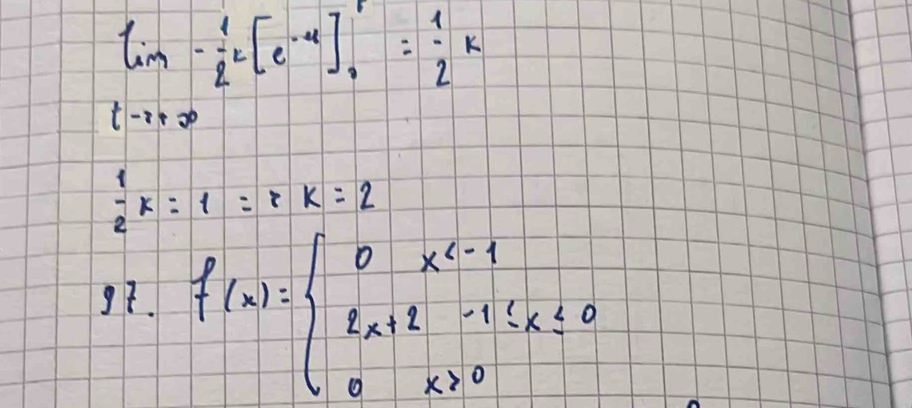 lim - 1/2 k [e^-u]₀ = 1/2 k
t → + ∞
1/2 k = 1 => k = 2
97. f(x) = { 0 x < -1
2x+2 -1 ≤ x ≤ 0
0 x > 0